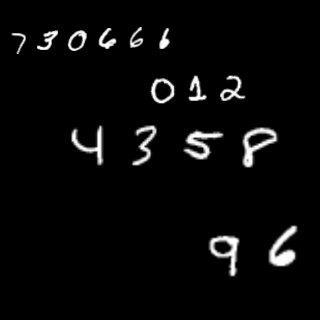 7 3 0 6 6 6
0 1 2
4 3 5 8
9 6